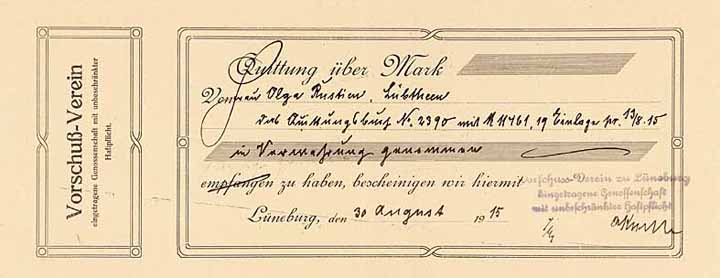 Vorschuß-Verein
eingetragene Genossenschaft mit unbeschränkter
Haftpflicht.
Quittung über Mark
Von Frau Olga Rustien, Lübtheen
das Quittungsbuch No. 2390 mit M 11461,19 Einlage pr. 13/8.15
in Verwahrung genommen
empfangen zu haben, bescheinigen wir hiermit
Lüneburg, den 30 August 1915
Vorschuss-Verein zu Lüneburg
Eingetragene Genossenschaft
mit unbeschränkter Haftpflicht